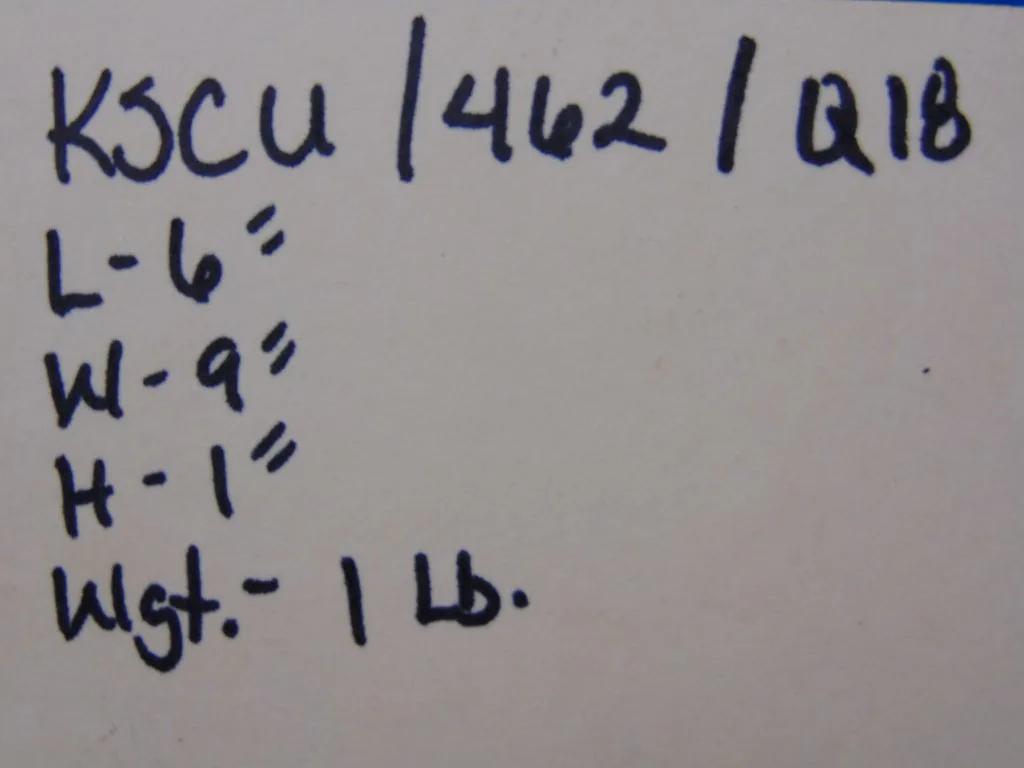 KSCU / 462 / Q18
L - 6"
W - 9"
H - 1"
Wgt. - 1 Lb.